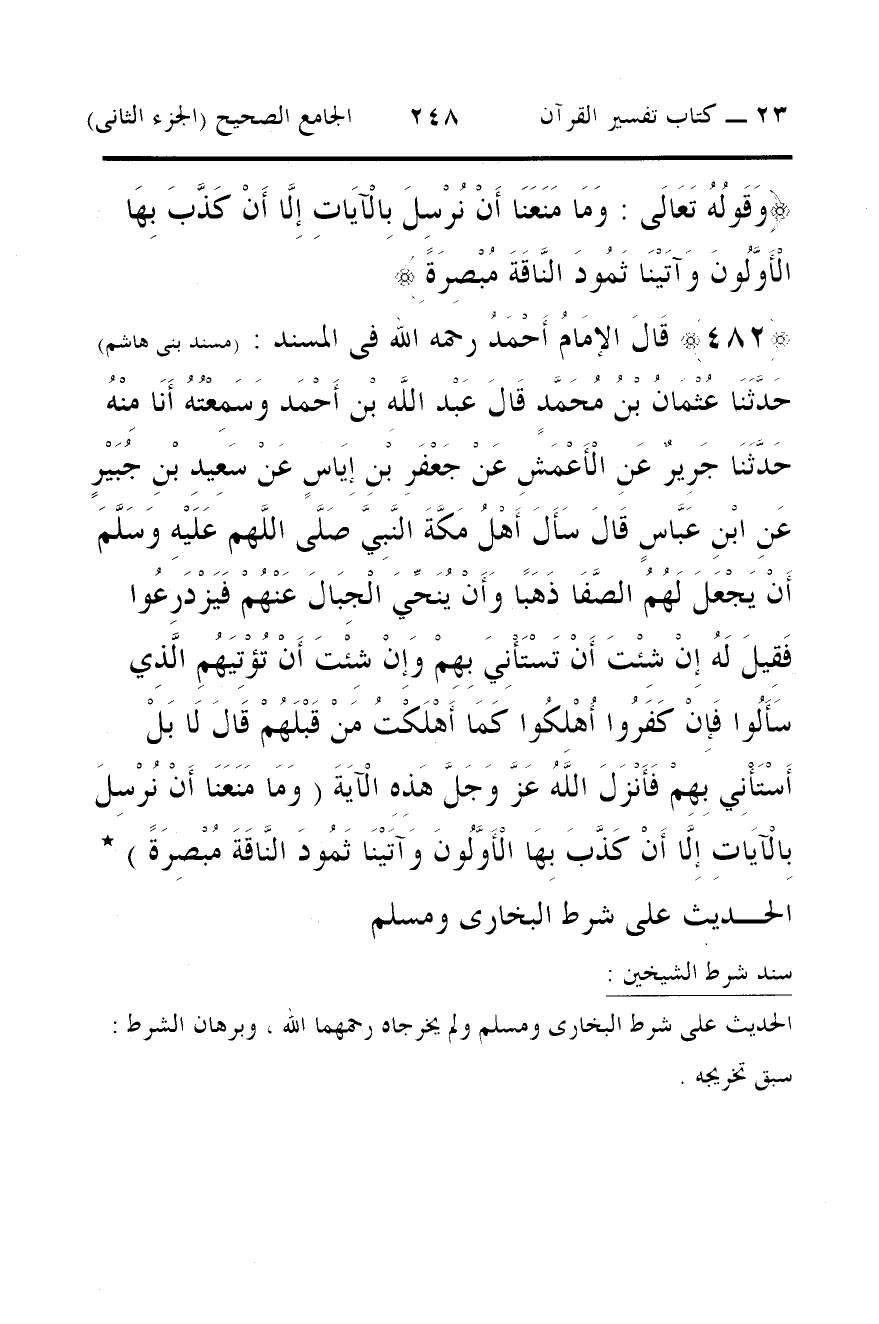 ٢٣ ــ كتاب تفسير القرآن ٢٤٨ الجامع الصحيح (الجزء الثانى)
﴿وَقَولُهُ تَعَالَى : وَمَا مَنَعَنَا أَنْ نُرْسِلَ بِالْآيَاتِ إِلَّا أَنْ كَذَّبَ بِهَا
الْأَوَّلُونَ وَآتَيْنَا ثَمُودَ النَّاقَةَ مُبْصِرَةً ﴾
﴿٤٨٢﴾ قَالَ الإمَامُ أَحْمَدُ رحمه الله فى المسند : (مسند بنى هاشم)
حَدَّثَنَا عُثْمَانُ بْنُ مُحَمَّدٍ قَالَ عَبْد اللَّهِ بْن أَحْمَد وَسَمِعْتُهُ أَنَا مِنْهُ
حَدَّثَنَا جَرِيرٌ عَنِ الْأَعْمَشِ عَنْ جَعْفَرِ بْنِ إِيَاسٍ عَنْ سَعِيدِ بْنِ جُبَيْرٍ
عَنِ ابْنِ عَبَّاسٍ قَالَ سَأَلَ أَهْلُ مَكَّةَ النَّبِيَّ صَلَّى اللَّهم عَلَيْهِ وَسَلَّمَ
أَنْ يَجْعَلَ لَهُمُ الصَّفَا ذَهَبًا وَأَنْ يُنَحِّيَ الْجِبَالَ عَنْهُمْ فَيَزْدَرِعُوا
فَقِيلَ لَهُ إِنْ شِئْتَ أَنْ تَسْتَأْنِيَ بِهِمْ وَإِنْ شِئْتَ أَنْ تُؤْتِيَهُمِ الَّذِي
سَأَلُوا فَإِنْ كَفَرُوا أُهْلِكُوا كَمَا أَهْلَكْتُ مَنْ قَبْلَهُمْ قَالَ لَا بَلْ
أَسْتَأْنِي بِهِمْ فَأَنْزَلَ اللَّهُ عَزَّ وَجَلَّ هَذِهِ الْآيَةَ ( وَمَا مَنَعَنَا أَنْ نُرْسِلَ
بِالْآيَاتِ إِلَّا أَنْ كَذَّبَ بِهَا الْأَوَّلُونَ وَآتَيْنَا ثَمُودَ النَّاقَةَ مُبْصِرَةً ) *
الحـــديث على شرط البخارى ومسلم
سند شرط الشيخين :
الحديث على شرط البخارى ومسلم ولم يخرجاه رحمهما الله ، وبرهان الشرط :
سبق تخريجه .